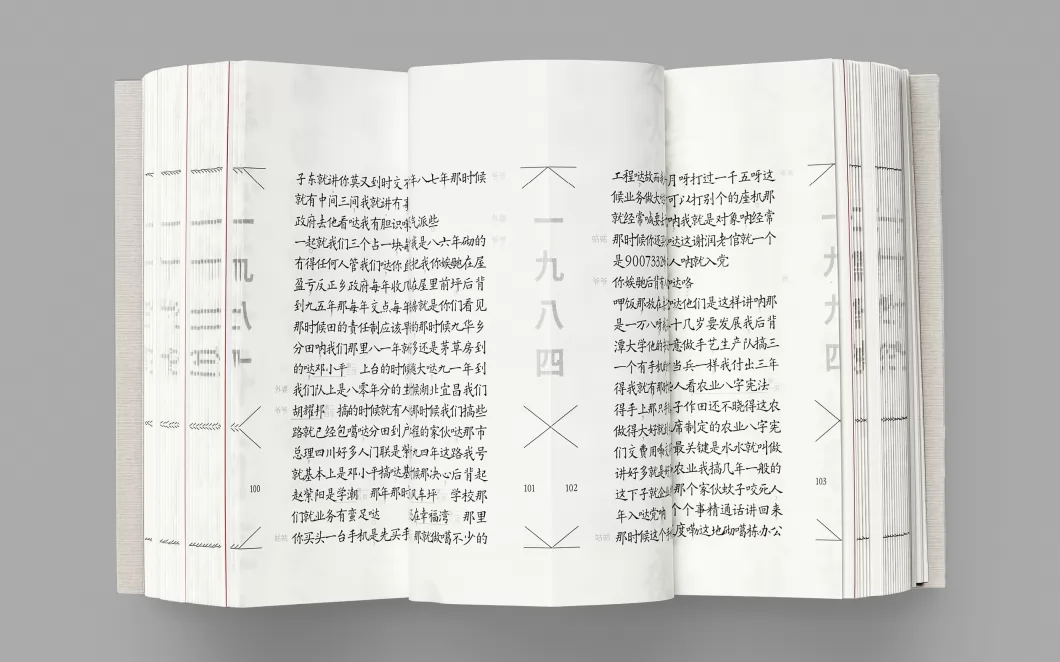 子东就讲你莫又到时文
就有中间三间我就讲有
政府去他看哒我有胆识
一起就我们三个占一块
冇得任何人管我们哒你
盈亏反正乡政府每年收
到九五年那每年交点每年
那时候田的责任制应该
分田呐我们那里八一年
的哒邓小平 上台的时
我们队上是八零年分的
胡耀邦 搞的时候就有人
路就已经包噶哒分田到
总理四川好多人门联是
就基本上是邓小平搞哒
赵紫阳是学潮 那年那时
们就业务有蛮足哒
你买头一台手机是先买手
100
年八七年那时候
派些
我是八六年砌的
把我你娭毑在屋
在屋里前坪后背
就是你们看见
的那时候九华乡
还是茅草房到
大哒九一年到
湖北宜昌我们
那时候我们搞些
的家伙哒那市
九四年这路我号
那决心后背起
车坪 学校那
在幸福湾 那里
那就做噶不少的
101
一九八四
102
工程哒故而
候业务做大
就经常喊
那时候你还
是9007332
你娭毑后背
呷饭那放在
是一万八
潭大学他的
一个有手机
得我就有那
得手上那只
做得大好就
们文费用
讲好多就是
这下子就企业
年入哒党
那时候这个
月呀打过一千五呀这
可以打别个的座机那
呐我就是对象呐经常
哒这谢润老倌就一个
人呐就入党
哒咯
哒他们是这样讲呐那
十几岁要发展我后背
意做手艺生产队搞三
当兵一样我付出三年
人看农业八字宪法
子作田还不晓得这农
席制定的农业八字宪
最关键是水水就叫做
农业我搞几年一般的
那个家伙蚊子咬死人
个个事精通话讲回来
度嘞这地砌噶拣办公
103